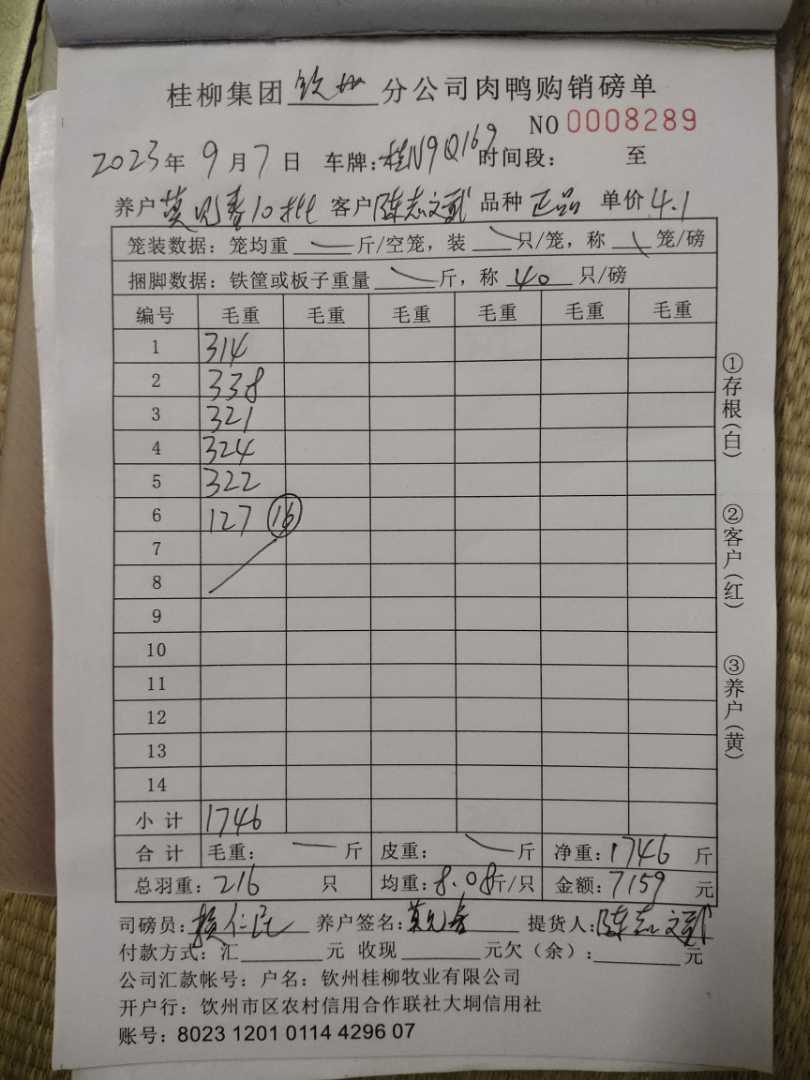 桂柳集团钦州分公司肉鸭购销磅单
NO 0008289
2023年9月7日 车牌:桂N9Q169时间段: 至
养户莫 春10批 客户陈志文武 品种正品 单价4.1
笼装数据:笼均重 斤/空笼,装 只/笼,称 笼/磅
捆脚数据:铁筐或板子重量 斤,称40只/磅
编号 毛重 毛重 毛重 毛重 毛重 毛重
1 314
2 338
3 321
4 324
5 322
6 127 16
7
8
9
10
11
12
13
14
小计 1746
合计 毛重: 斤 皮重: 斤 净重:1746斤
总羽重:216 只 均重:8.08斤/只 金额:7159元
司磅员:赖仁民 养户签名:莫 春 提货人:陈志文武
付款方式:汇 元 收现 元欠(余): 元
公司汇款帐号:户名:钦州桂柳牧业有限公司
开户行:饮州市区农村信用合作联社大垌信用社
账号:8023 1201 0114 4296 07
①存根(白)
②客户(红)
③养户(黄)